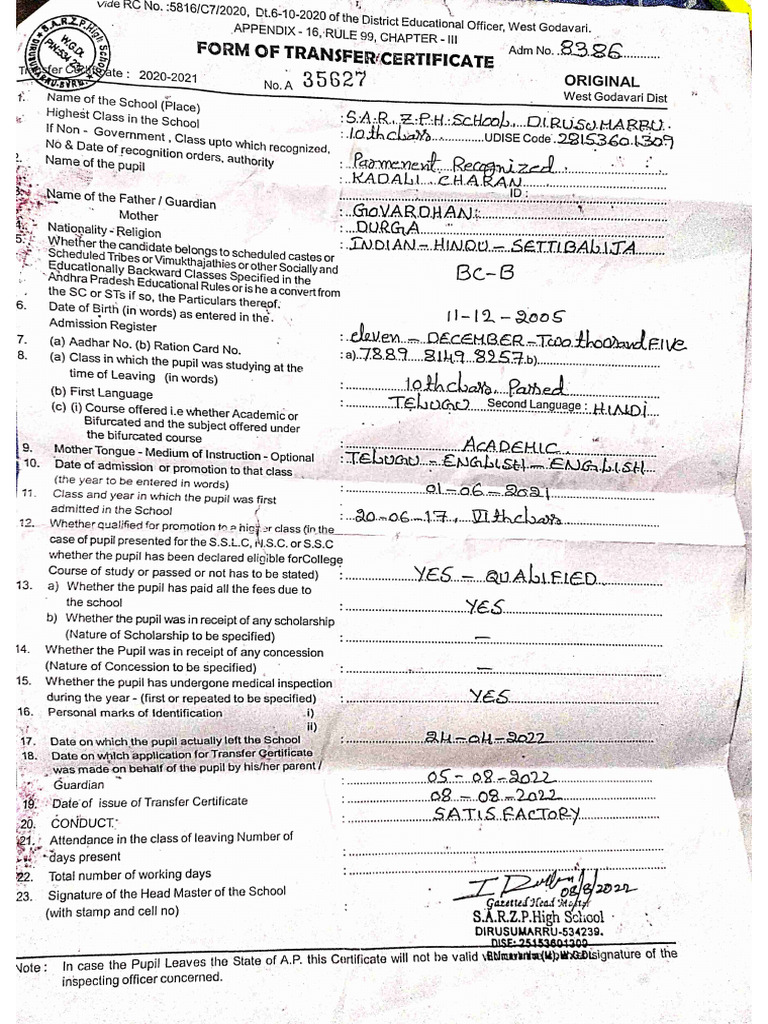 Vide RC No. :5816/C7/2020, Dt.6-10-2020 of the District Educational Officer, West Godavari.
APPENDIX - 16, RULE 99, CHAPTER - III
FORM OF TRANSFER CERTIFICATE
Adm No. 8386
Transfer Certificate : 2020-2021
No. A 35627
ORIGINAL
West Godavari Dist
S.A.R.Z.P.High School
W.G.Dt.
1. Name of the School (Place) : S.A.R. Z.P.H. SCHOOL, DIRUSUMARRU.
Highest Class in the School : 10th class UDISE Code 28153601309
If Non - Government , Class upto which recognized,
No & Date of recognition orders, authority Parmenent Recognized
2. Name of the pupil : KADALI CHARAN
ID :
3. Name of the Father / Guardian : GOVARDHAN
Mother : DURGA
4. Nationality - Religion : INDIAN - HINDU - SETTIBALIJA
5. Whether the candidate belongs to scheduled castes or
Scheduled Tribes or Vimukthajathies or other Socially and
Educationally Backward Classes Specified in the
Andhra Pradesh Educational Rules or is he a convert from
the SC or STs if so, the Particulars thereof.
BC-B
6. Date of Birth (in words) as entered in the
Admission Register
11-12-2005
: eleven - DECEMBER - Two thousand FIVE
7. (a) Aadhar No. (b) Ration Card No. : a) 7889 8149 8257 b)
8. (a) Class in which the pupil was studying at the
time of Leaving (in words) : 10th class Passed
(b) First Language : TELUGU Second Language : HINDI
(c) (i) Course offered i.e whether Academic or
Bifurcated and the subject offered under
the bifurcated course : ACADEMIC
9. Mother Tongue - Medium of Instruction - Optional : TELUGU - ENGLISH - ENGLISH
10. Date of admission or promotion to that class
(the year to be entered in words) : 01-06-2021
11. Class and year in which the pupil was first
admitted in the School : 20-06-17, VIth class
12. Whether qualified for promotion to a higher class (in the
case of pupil presented for the S.S.L.C, H.S.C. or S.S.C
whether the pupil has been declared eligible forCollege
Course of study or passed or not has to be stated) : YES - QUALIFIED
13. a) Whether the pupil has paid all the fees due to
the school : YES
b) Whether the pupil was in receipt of any scholarship
(Nature of Scholarship to be specified) : —
14. Whether the Pupil was in receipt of any concession
(Nature of Concession to be specified) : —
15. Whether the pupil has undergone medical inspection
during the year - (first or repeated to be specified) : YES
16. Personal marks of Identification i)
ii)
17. Date on which the pupil actually left the School : 24-04-2022
18. Date on which application for Transfer Certificate
was made on behalf of the pupil by his/her parent /
Guardian : 05-08-2022
19. Date of issue of Transfer Certificate : 08-08-2022
20. CONDUCT : SATISFACTORY
21. Attendance in the class of leaving Number of
days present :
22. Total number of working days :
23. Signature of the Head Master of the School
(with stamp and cell no) :
08/8/2022
Gazetted Head Master
S.A.R.Z.P.High School
DIRUSUMARRU-534239.
DISE: 25153601309
Note : In case the Pupil Leaves the State of A.P. this Certificate will not be valid signature of the
inspecting officer concerned.